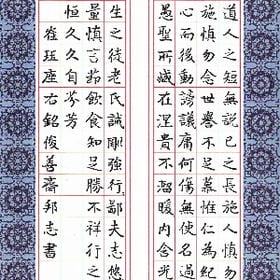 道人之短無說己之長施人慎勿
施慎勿念世譽不足慕惟仁為紀
心而後動謗議庸何傷無使名過
愚聖所臧在涅貴不淄暧內含光
生之徒老氏誡剛強行鄙夫志悠
量慎言節飲食知足勝不祥行之
恒久久自芬芳
崔珏座右銘俊善齋邦志書